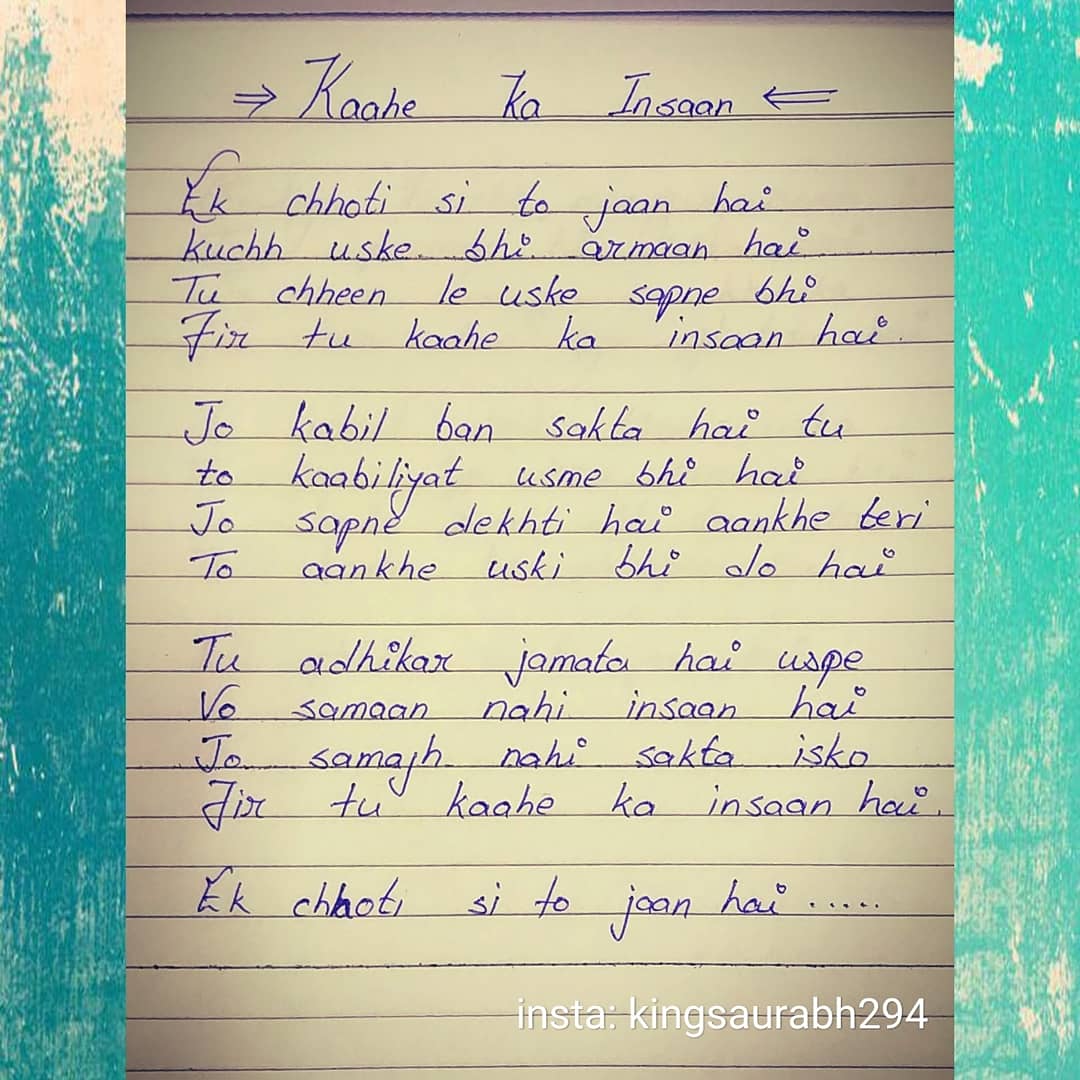 ⇒ Kaahe ka Insaan ⇐
Ek chhoti si to jaan hai
kuchh uske bhi armaan hai
Tu chheen le uske sapne bhi
Fir tu kaahe ka insaan hai.
Jo kabil ban sakta hai tu
to kaabiliyat usme bhi hai
Jo sapne dekhti hai aankhe teri
To aankhe uski bhi do hai
Tu adhikar jamata hai uspe
Vo samaan nahi insaan hai
Jo samajh nahi sakta isko
Fir tu kaahe ka insaan hai.
Ek chhoti si to jaan hai .....
insta: kingsaurabh294